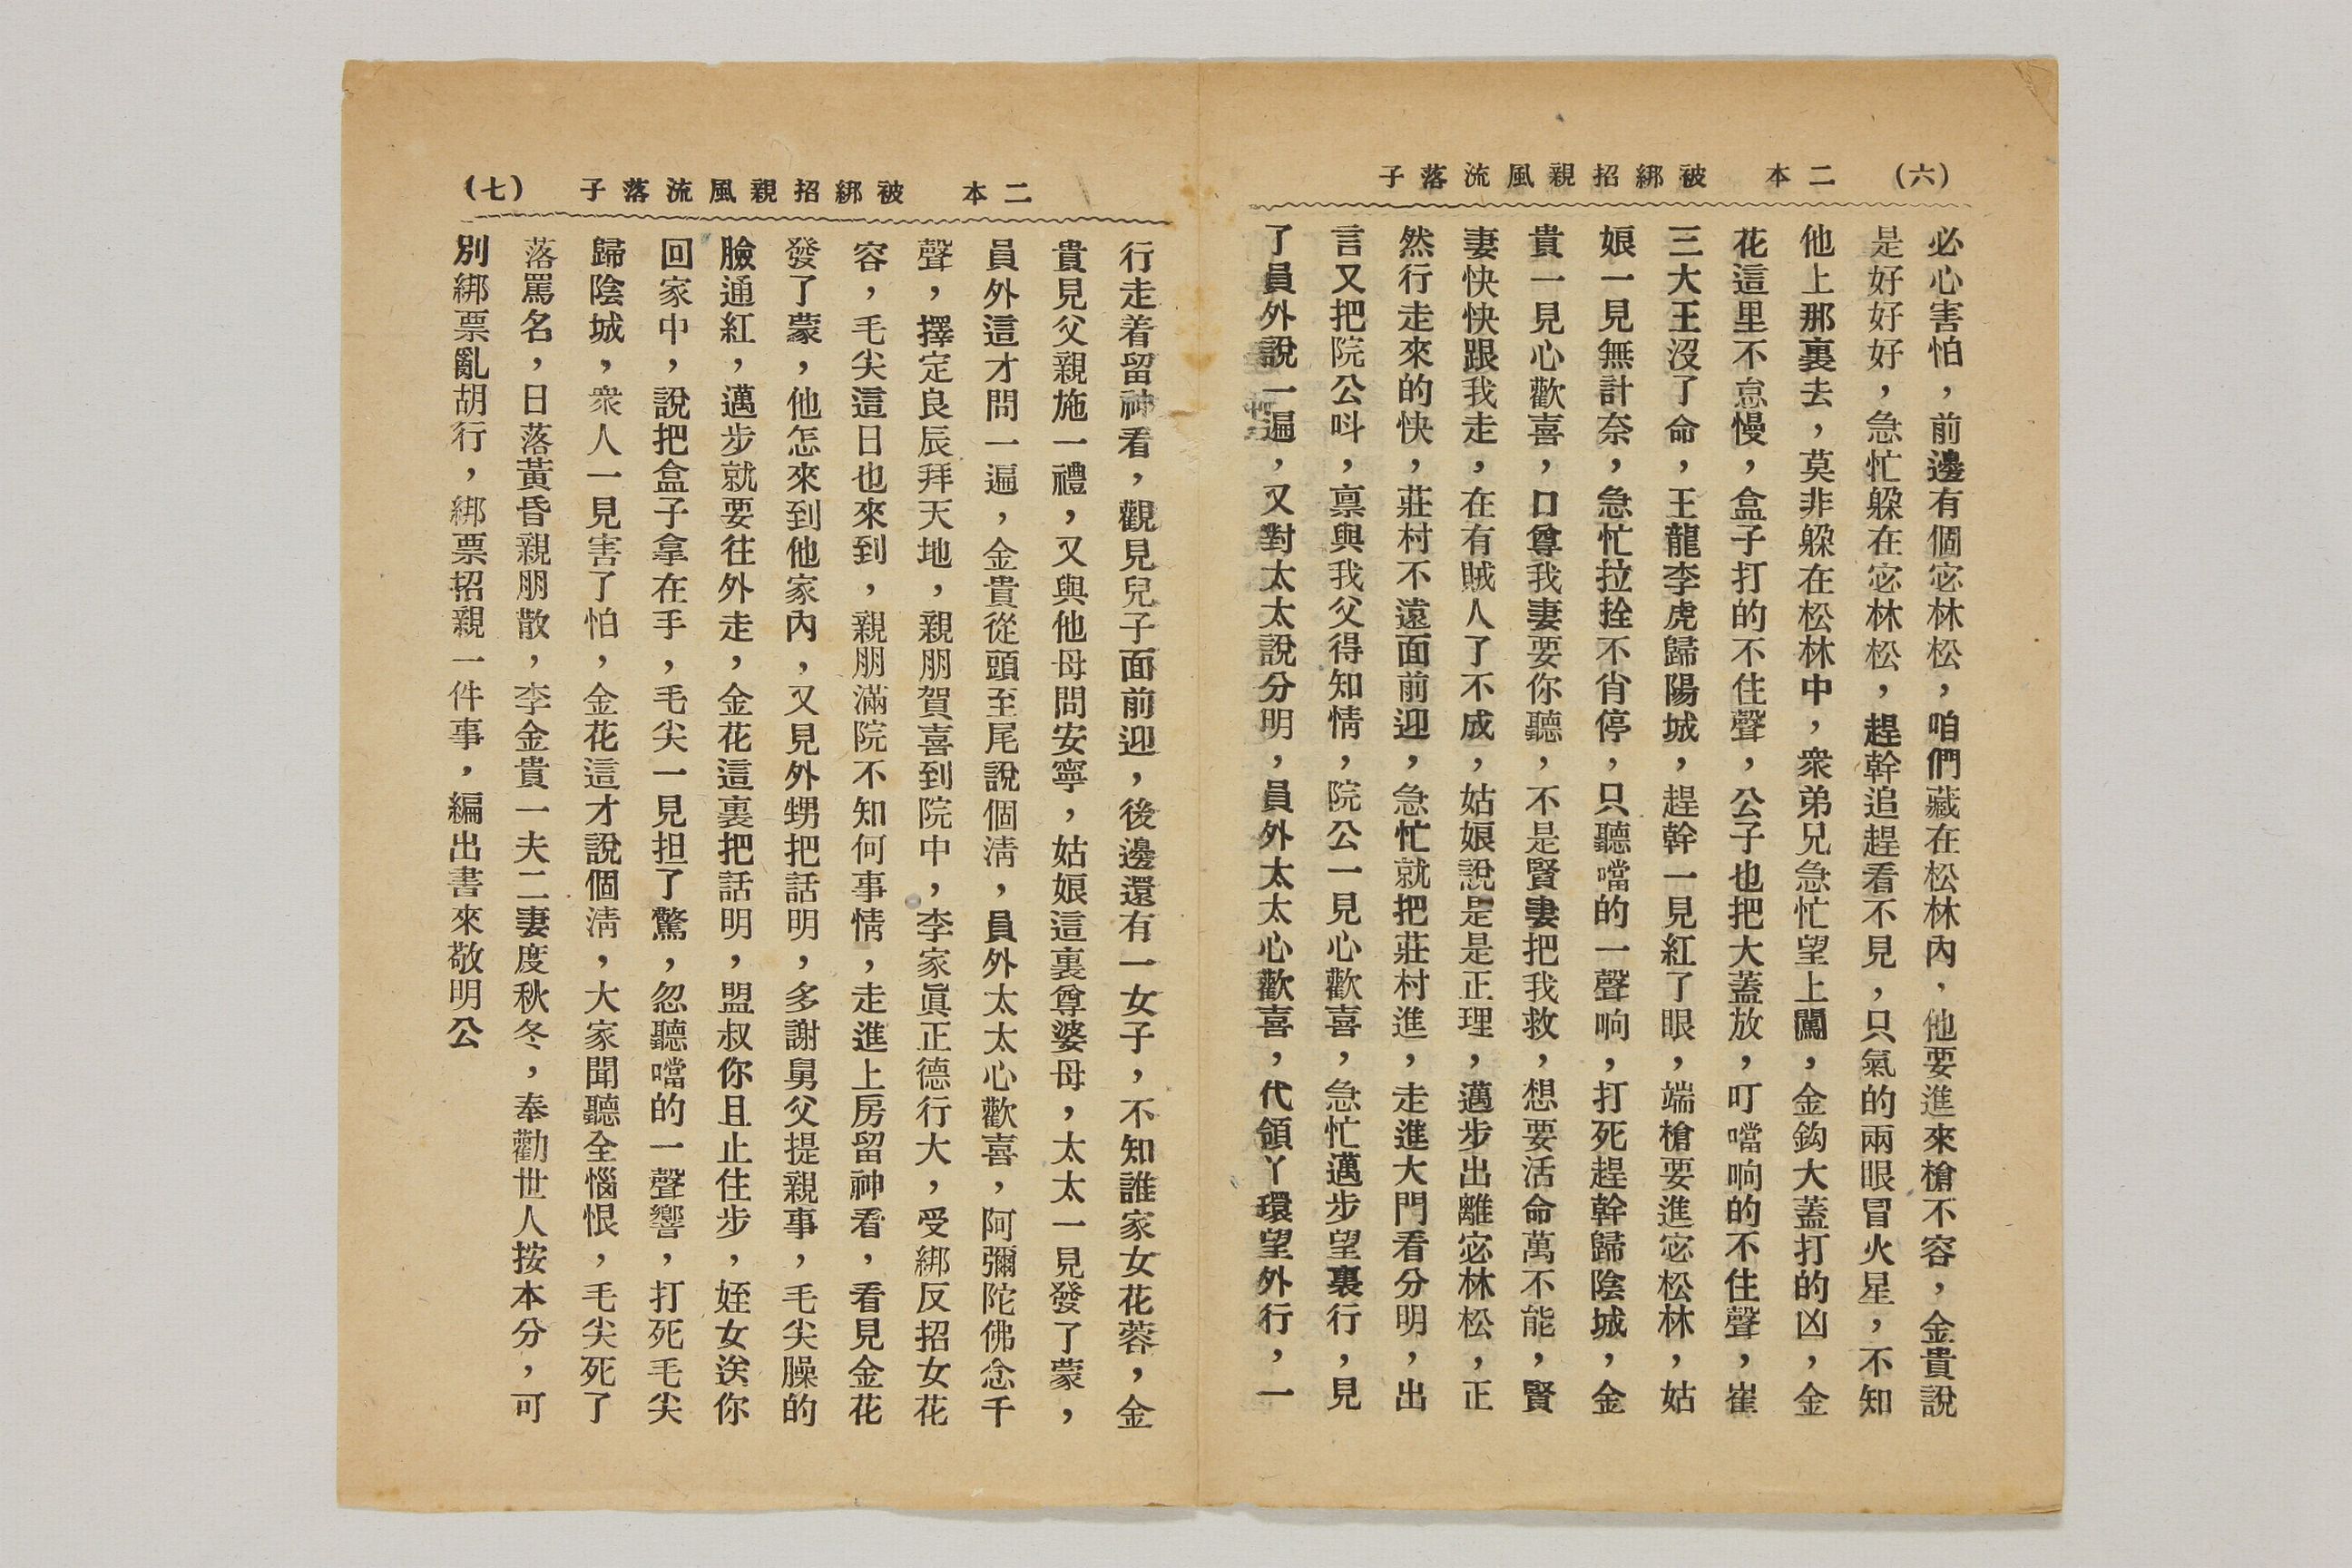 (六)　二本　被綁招親風流落子
必心害怕，前邊有個宓林松，咱們藏在松林內，他要進來槍不容，金貴說
是好好好，急忙躲在宓林松，趕幹追趕看不見，只氣的兩眼冒火星，不知
他上那裏去，莫非躲在松林中，衆弟兄急忙望上闖，金鈎大蓋打的凶，金
花這里不怠慢，盒子打的不住聲，公子也把大蓋放，叮噹响的不住聲，崔
三大王沒了命，王龍李虎歸陽城，趕幹一見紅了眼，端槍要進宓松林，姑
娘一見無計奈，急忙拉拴不肖停，只聽噹的一聲响，打死趕幹歸陰城，金
貴一見心歡喜，口尊我妻要你聽，不是賢妻把我救，想要活命萬不能，賢
妻快快跟我走，在有賊人了不成，姑娘說是是正理，邁步出離宓林松，正
然行走來的快，莊村不遠面前迎，急忙就把莊村進，走進大門看分明，出
言又把院公呌，禀與我父得知情，院公一見心歡喜，急忙邁步望裏行，見
了員外說一遍，又對太太說分明，員外太太心歡喜，代領丫環望外行，一
(七)　二本　被綁招親風流落子
行走着留神看，觀見兒子面前迎，後邊還有一女子，不知誰家女花蓉，金
貴見父親施一禮，又與他母問安寧，姑娘這裏尊婆母，太太一見發了蒙，
員外這才問一遍，金貴從頭至尾說個清，員外太太心歡喜，阿彌陀佛念千
聲，擇定良辰拜天地，親朋賀喜到院中，李家眞正德行大，受綁反招女花
容，毛尖這日也來到，親朋滿院不知何事情，走進上房留神看，看見金花
發了蒙，他怎來到他家內，又見外甥把話明，多謝舅父提親事，毛尖臊的
臉通紅，邁步就要往外走，金花這裏把話明，盟叔你且止住步，姪女送你
回家中，說把盒子拿在手，毛尖一見担了驚，忽聽噹的一聲響，打死毛尖
歸陰城，衆人一見害了怕，金花這才說個淸，大家聞聽全惱恨，毛尖死了
落罵名，日落黃昏親朋散，李金貴一夫二妻度秋冬，奉勸世人按本分，可
別綁票亂胡行，綁票招親一件事，編出書來敬明公